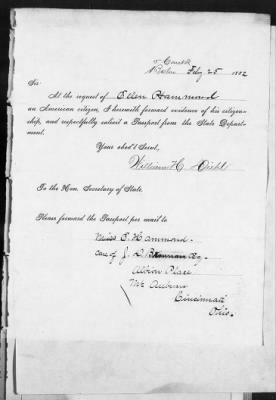 Feby 25 1882
Sir:
At the request of Ellen Hammond
an American citizen, I herewith forward evidence of his citizen-
ship, and respectfully solicit a Passport from the State Depart-
ment.
Your obed't Servt,
William H. Diehl
To the Hon. Secretary of State.
Please forward the Passport per mail to
Miss E. Hammond.
care of J. L. Esq.
Albion Place
Mt Auburn
Cincinnati
Ohio.